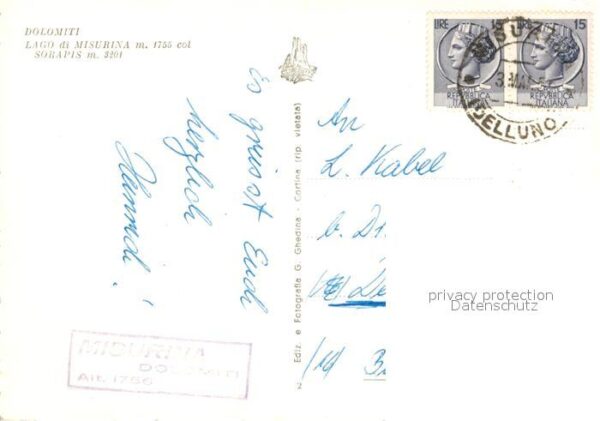 DOLOMITI
LAGO di MISURINA m. 1755 col
SORAPIS m. 3201
Es grüsst Euch
herzlich
MISURINA
DOLOMITI
Alt. 1756
Ediz. e Fotografia G. Ghedina - Cortina (rip. vietata)
2
LIRE 15
REPUBBLICA
ITALIANA
LIRE 15
REPUBBLICA
ITALIANA
An
L. Kabel
b. Dr.
privacy protection
Datenschutz